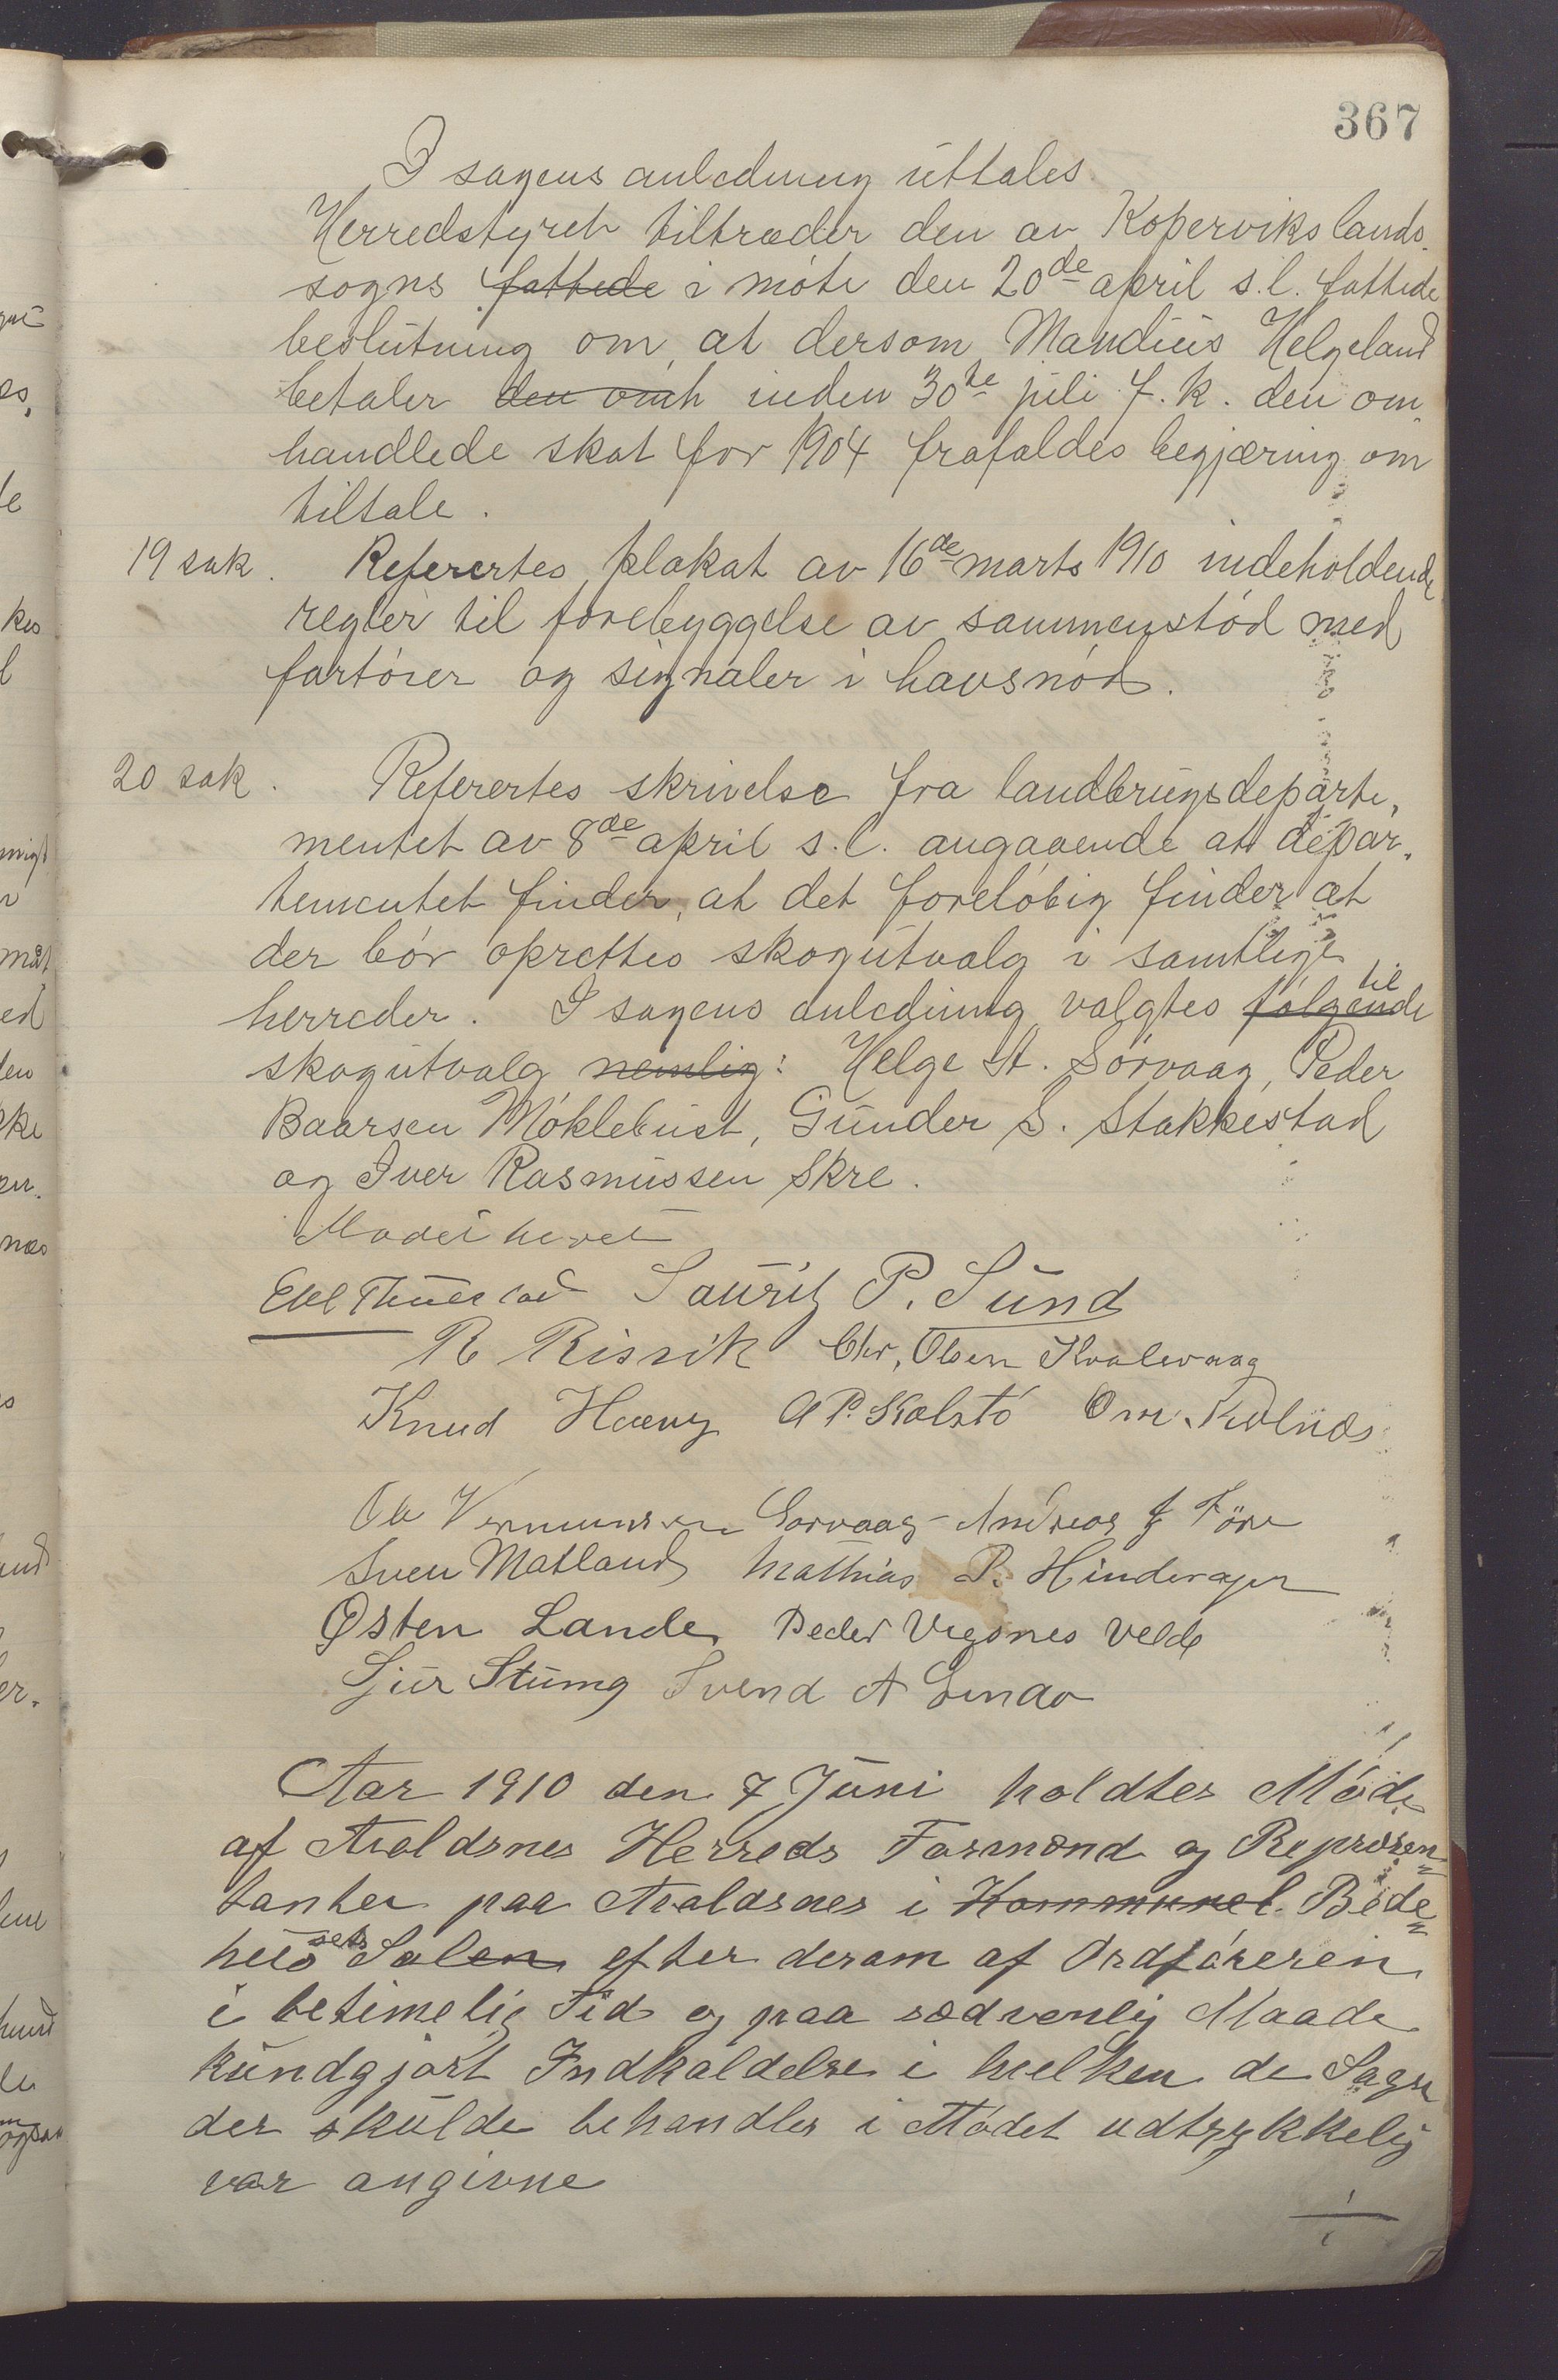 367
I sagens anledning uttales.
Herredstyret tiltræder den av Koperviks lands-
sogns fattede i møte den 20de april s.l. fattede
beslutning om, at dersom Mandius Helgeland
betaler den omh inden 30te juli f.k. den om-
handlede skat for 1904 frafaldes begjæring om
tiltale.
19 sak. Referertes plakat av 16de marts 1910 indeholdende
regler til forebyggelse av sammenstød med
fartøier og signaler i havsnød.
20 sak. Referertes skrivelse fra landbrugsdeparte-
mentet av 8de april s.l. angaaende at depar-
tementet finder, at det foreløbig finder at
der bør oprettes skogutvalg i samtlige
herreder. I sagens anledning valgtes følgende til
skogutvalg nemlig: Helge St. Sørvaag, Peder
Baarsen Møklebust, Gunder S. Stakkestad
og Iver Rasmussen Skre.
Mødet hevet
Lauritz P. Sund
R Rissik Chr. Olsen Kvalevaag
Knud Haavg A P. Kolstø Kolnæs
Ole Vermunsen Sørvaag Andreas J Føre
Sven Matland Mathias P. Hinderager
Østen Lande Peder Vregsnes Velde
Sjur Stumg Svend A Lindø
Aar 1910 den 7 Juni holdtes Møde
af Avaldsnes Herreds Formænd og Repræsen-
tanter paa Avaldsnes i Kommunel. Bede-
husets Salen efter deram af Ordføreren
i betimelig Tid og paa sædvanlig Maade
kundgjort Indkaldelse i hvilken de Sager
der skulde behandles i Mødet udtrykkelig
var angivne